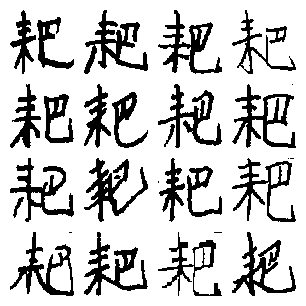 耙耙耙耙
耙耙耙耙
耙耙耙耙
耙耙耙耙